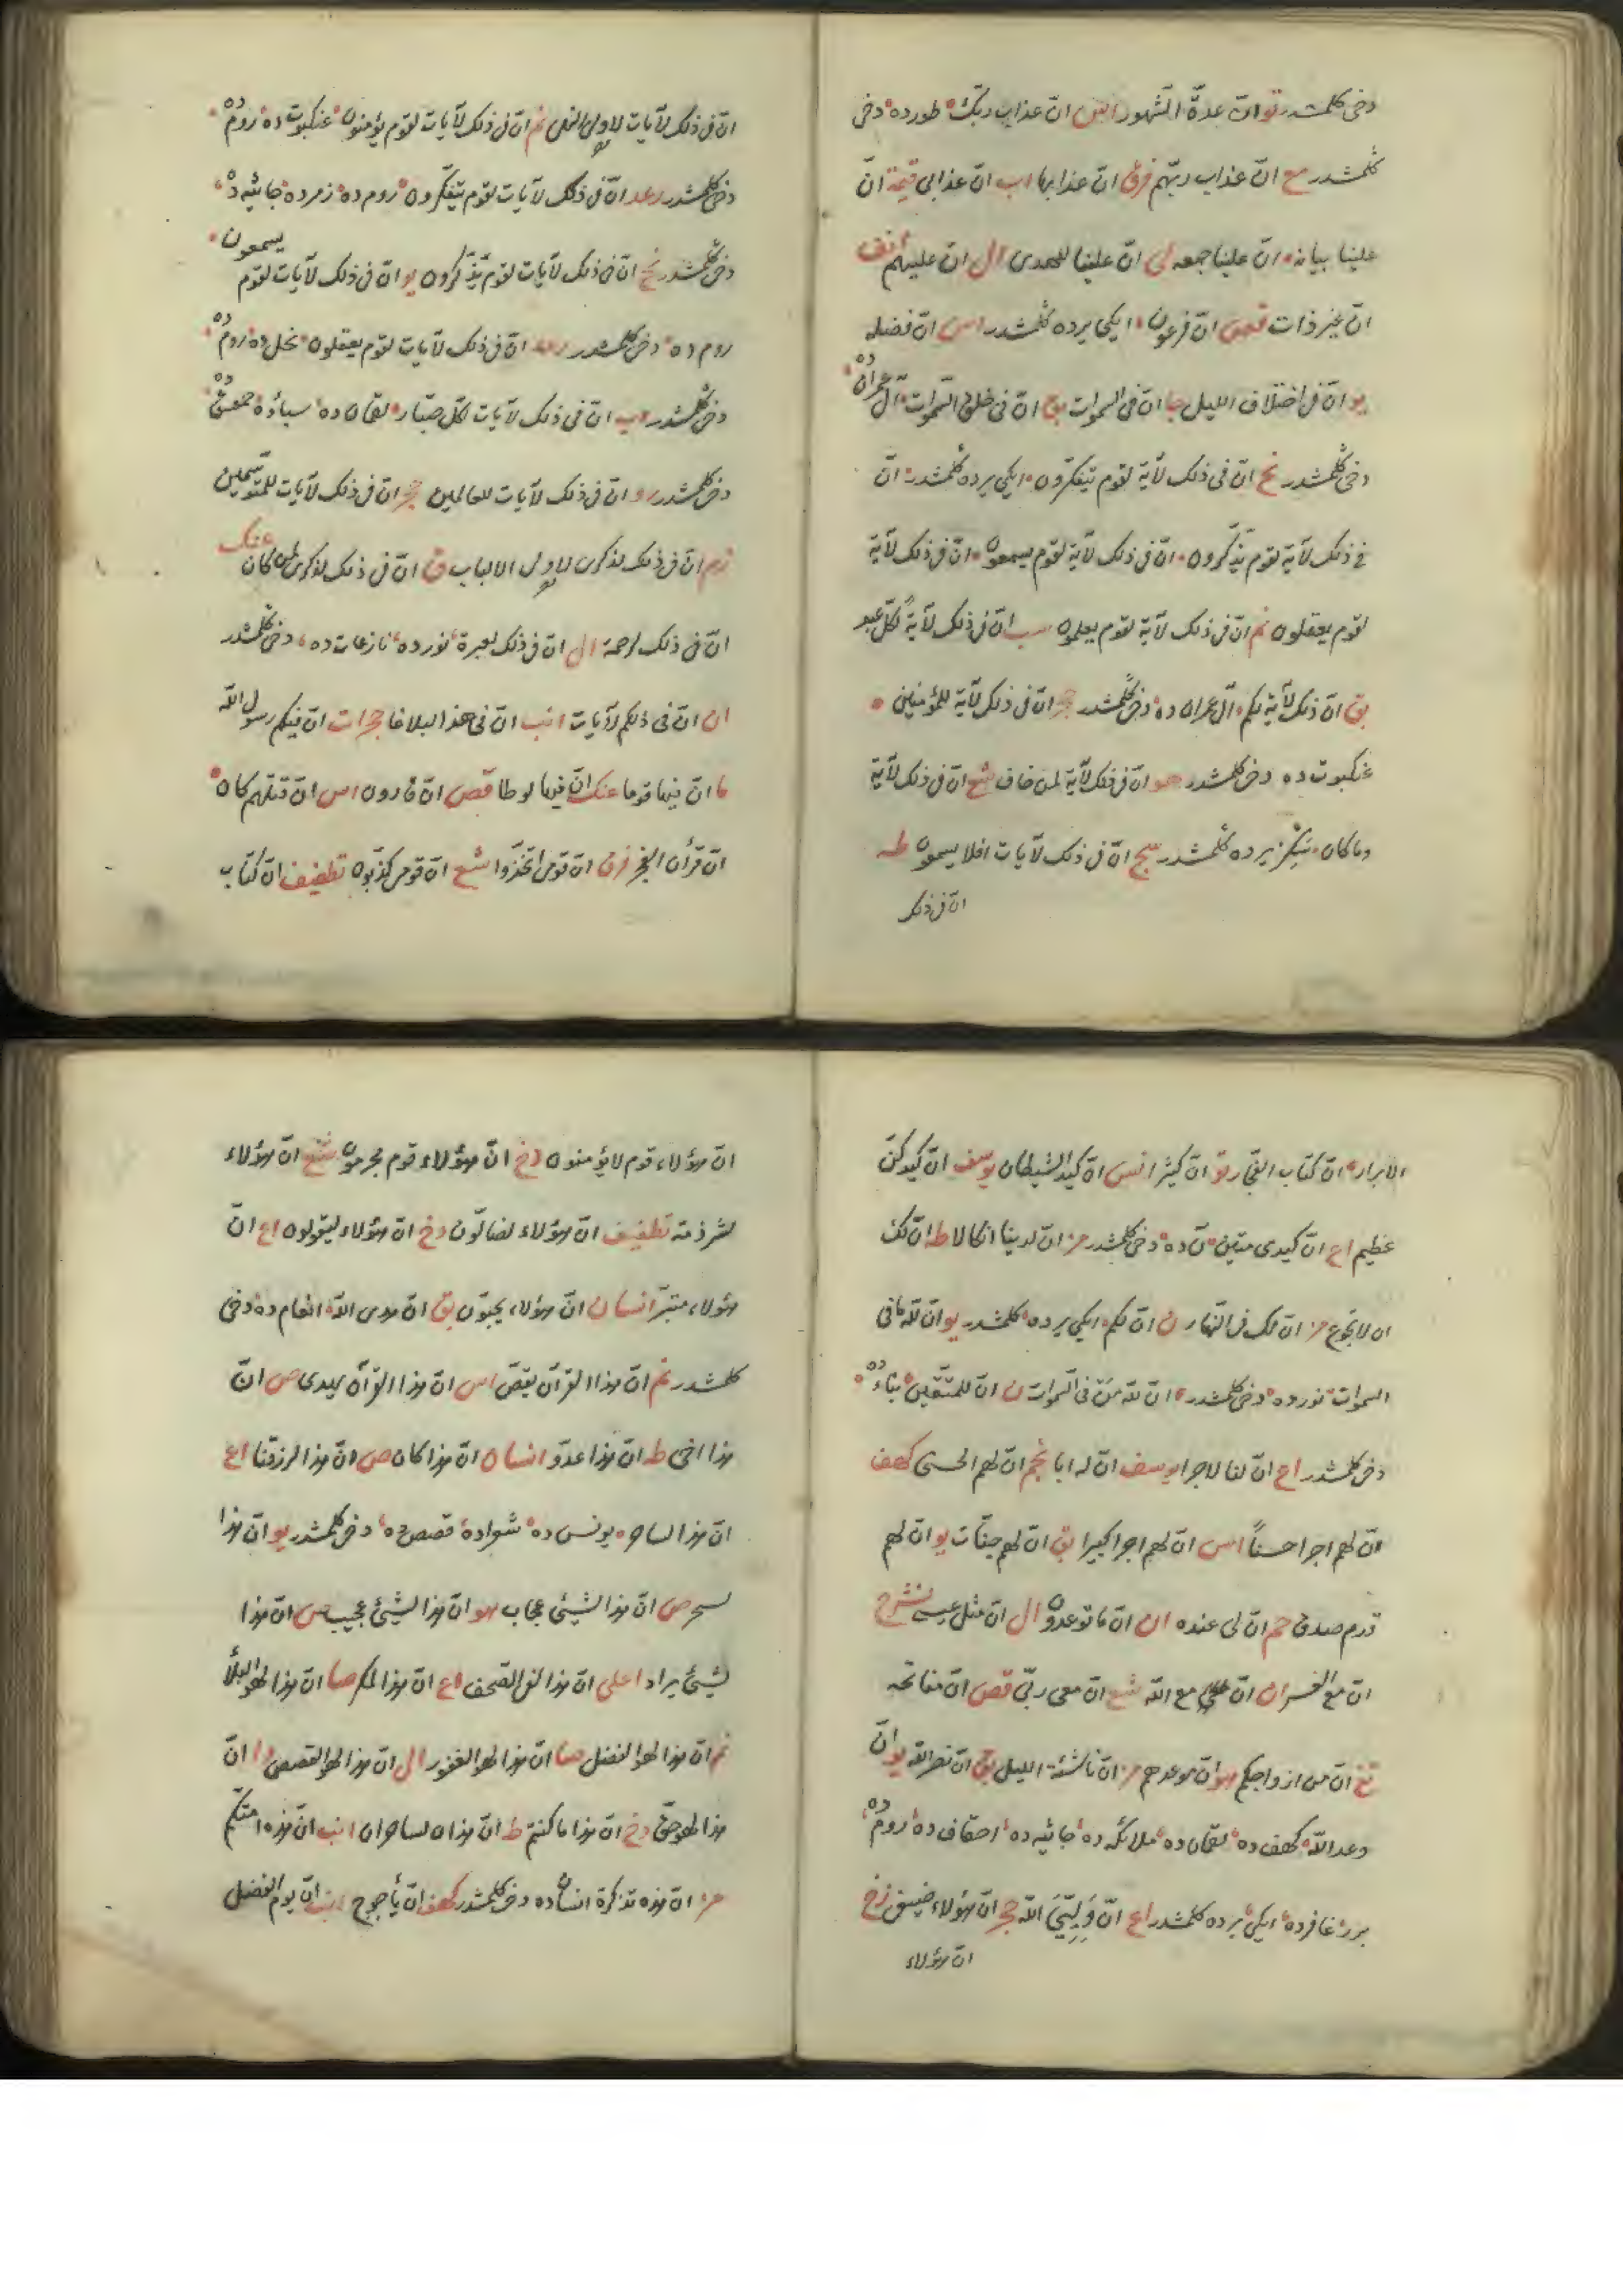 دخی کلمشدر تو ان عدة الشهور اس ان عذاب ربك طورده دخی
کلمشدر مع ان عذاب ربهم فرق ان عذابها اب ان عذابی قیمة ان
علینا بیانه ان علینا جمعه لی ان علینا للهدی ال ان علیهم
ان غیر ذات قصص ان فرعون ایکی یرده کلمشدر اس ان فضله
یو ان فی اختلاف اللیل جا ان فی السموات بق ان فی خلق السموات آل عمران ده
دخی کلمشدر نح ان فی ذلك لآیة لقوم یتفکرون ایکی یرده کلمشدر ان
فی ذلك لآیة لقوم یذکرون ان فی ذلك لآیة لقوم یسمعون ان فی ذلك لآیة
لقوم یعقلون نم ان فی ذلك لآیة لقوم یعلمون سب ان فی ذلك لآیة لکل عبد
بق ان فی ذلك لآیة لکم آل عمران ده دخی کلمشدر حجر ان فی ذلك لآیة للمؤمنین
عنکبوت ده دخی کلمشدر هو ان فی ذلك لآیة لمن خاف شع ان فی ذلك لآیة
وما کان سکز یرده کلمشدر سج ان فی ذلك لآیات افلا یسمعون طه
ان فی ذلك
ان فی ذلك لآیات لاولی النهی نم ان فی ذلك لآیات لقوم یؤمنون عنکبوت ده روم ده
دخی کلمشدر رعد ان فی ذلك لآیات لقوم یتفکرون روم ده زمرده جاثیه ده
دخی کلمشدر نح ان فی ذلك لآیات لقوم یذکرون یو ان فی ذلك لآیات لقوم یسمعون
روم ده دخی کلمشدر رعد ان فی ذلك لآیات لقوم یعقلون نحل ده روم ده
دخی کلمشدر اب ان فی ذلك لآیات لکل صبار لقمان ده سبأده حمعسق ده
دخی کلمشدر رو ان فی ذلك لآیات للعالمین حجر ان فی ذلك لآیات للمتوسمین
زم ان فی ذلك لذکری لاولی الالباب ق ان فی ذلك لذکری لمن کان عنك
ان فی ذلك لرحمة ال ان فی ذلك لعبرة نورده نازعات ده دخی کلمشدر
ان ان فی ذلکم لآیات انب ان فی هذا لبلاغا حجرات ان فیکم رسول الله
ما ان فیها قوما عنك ان فیها لوطا قصص ان قارون اس ان قتلهم کان
ان قرأن الفجر فرق ان قومی اتخذوا شع ان قومی کذبون تطفیف ان کتاب
الابرار ان کتاب الفجار تو ان کثیرا نس ان کید الشیطان یوسف ان کیدکن
عظیم اع ان کیدی متین ن ده دخی کلمشدر مز ان لدینا انکالا طه ان لك
ان لا تجوع مز ان لك فی النهار ن ان لکم ایکی یرده کلمشدر یو ان لله ما فی
السموات نورده دخی کلمشدر ان لله من فی السموات ن ان للمتقین نباء ده
دخی کلمشدر اع ان لنا لاجرا یوسف ان له ابا نجم ان لهم الحسنی کهف
ان لهم اجرا حسنا اس ان لهم اجرا کبیرا بق ان لهم جنات یو ان لهم
قدم صدق حم ان لی عنده ان ان ما توعدون ال ان مثل عیسی نشرح
ان مع العسر ان ان مع الله شع ان معی ربی قص ان مفاتحه
تغ ان من ازواجکم هو ان موعدهم مز ان ناشئة اللیل بق ان نصر الله یو ان
وعد الله کهف ده لقمان ده ملائکه ده جاثیه ده احقاف ده روم ده
برر غافرده ایکی یرده کلمشدر اع ان ولیی الله حجر ان هؤلاء ضیفی زخ
ان هؤلاء
ان هؤلاء قوم لا یؤمنون دخ ان هؤلاء قوم مجرمون شع ان هؤلاء
لشرذمة تطفیف ان هؤلاء لضالون دخ ان هؤلاء لیقولون اع ان
هؤلاء متبر انسان ان هؤلاء یحبون بق ان هدی الله انعام ده دخی
کلمشدر نم ان هذا القرآن یقص اس ان هذا القرآن یهدی ص ان
هذا اخی طه ان هذا عدو انسان ان هذا کان ص ان هذا لرزقنا اع
ان هذا لساحر یونس ده شعراده قصص ده دخی کلمشدر یو ان هذا
لسحر ص ان هذا لشیئ عجاب هو ان هذا لشیئ عجیب ص ان هذا
لشیئ یراد اعلی ان هذا لفی الصحف اع ان هذا لمکر صا ان هذا لهو البلأ
نم ان هذا لهو الفضل صا ان هذا لهو الفوز ال ان هذا لهو القصص وا ان
هذا لهو حق دخ ان هذا ما کنتم طه ان هذان لساحران انب ان هذه امتکم
مز ان هذه تذکرة انسان ده دخی کلمشدر کهف ان یأجوج ان یوم الفصل